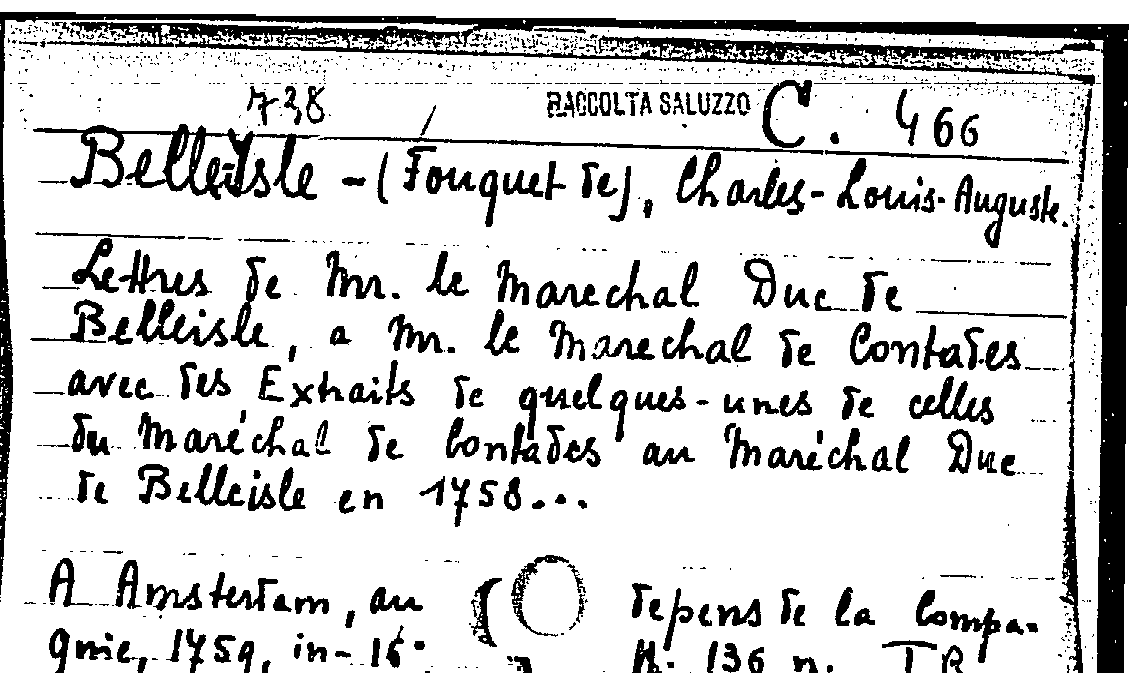 738 RACCOLTA SALUZZO C. 466
Belle-Isle - (Fouquet de), Charles-Louis-Auguste.
Lettres de Mr. le Marechal Duc de
Belleisle, a Mr. le Marechal de Contades
avec des Extraits de quelques-unes de celles
du Maréchal de Contades au Maréchal Duc
de Belleisle en 1758...
A Amsterdam, au depens de la Compa-
gnie, 1759, in-16° 136 n.